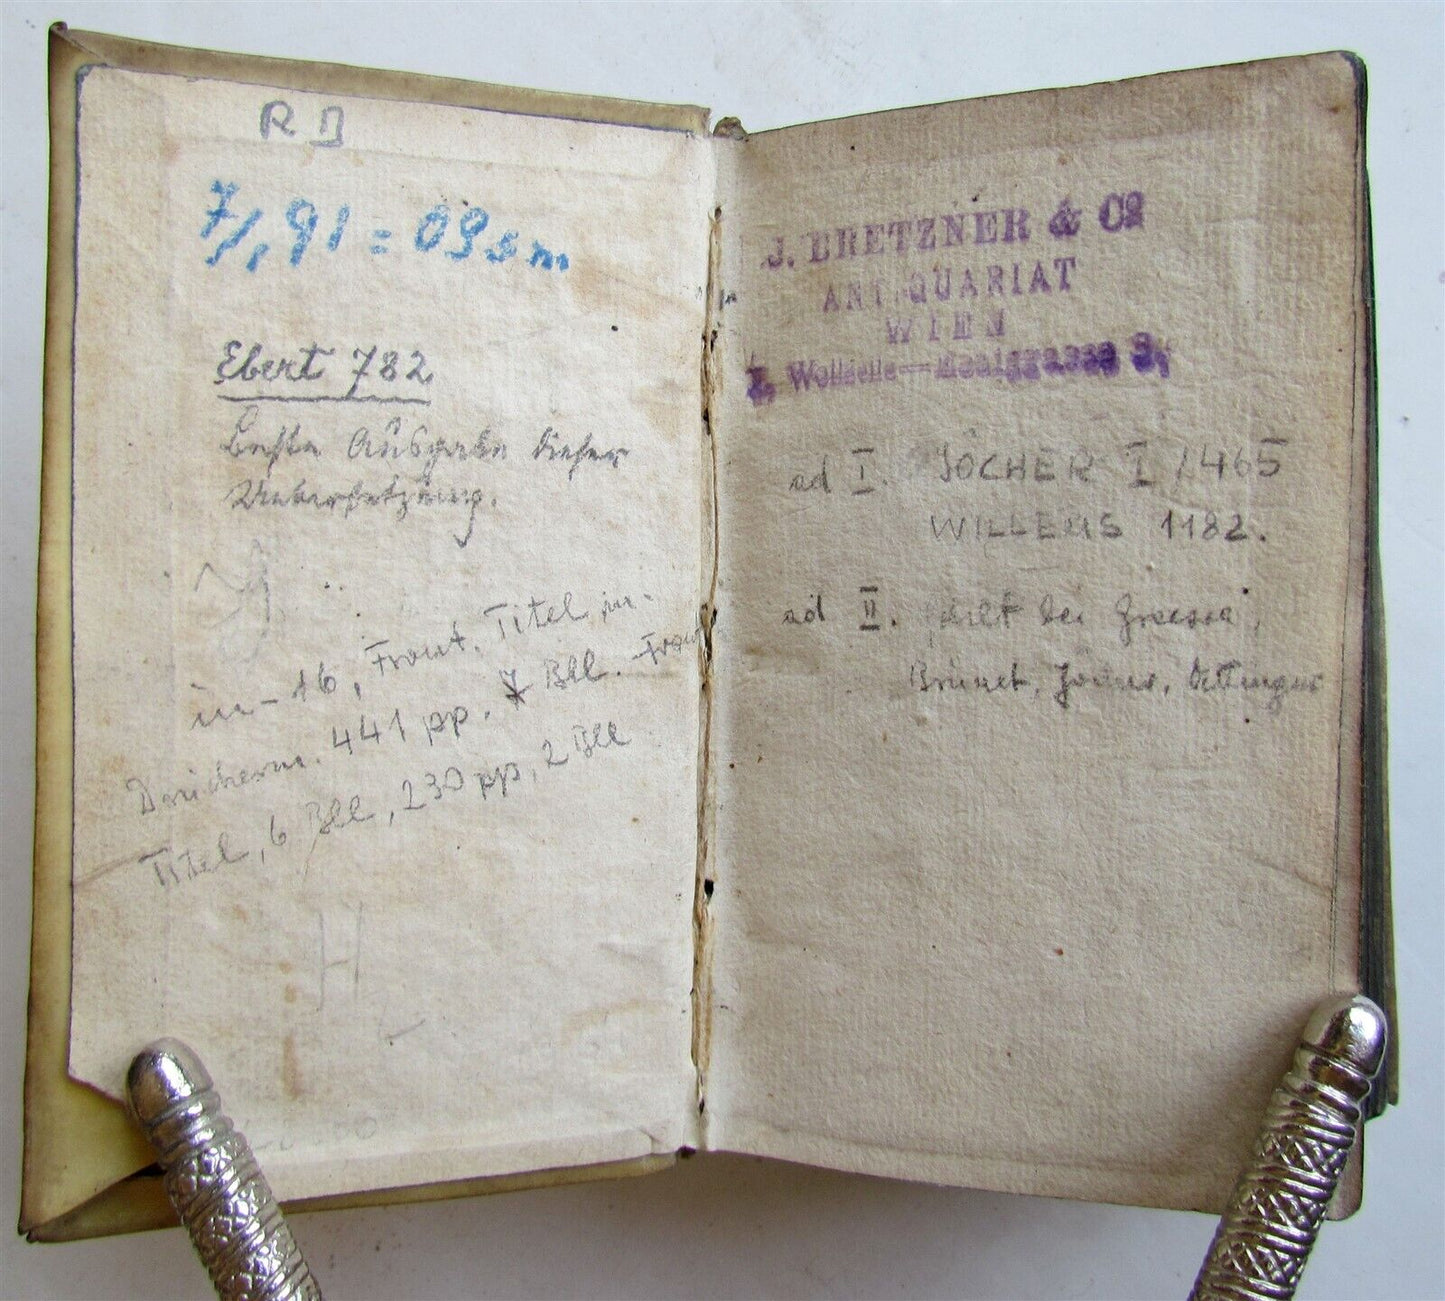 R
7/, 91 = 09 sm
Ebert 782
Beste Ausgabe dieser
Uebersetzung.
in-16, Front. Titel m.
441 pp. 7 Bll. Front
Titel, 6 Bll, 230 pp, 2 Bll
H
J. BRETZNER & Co
ANTIQUARIAT
WIEN
I. Wollzeile
ad I. JÖCHER I / 465
WILLEMS 1182.
ad II. fehlt bei Graesse,
Brunet, Oettinger